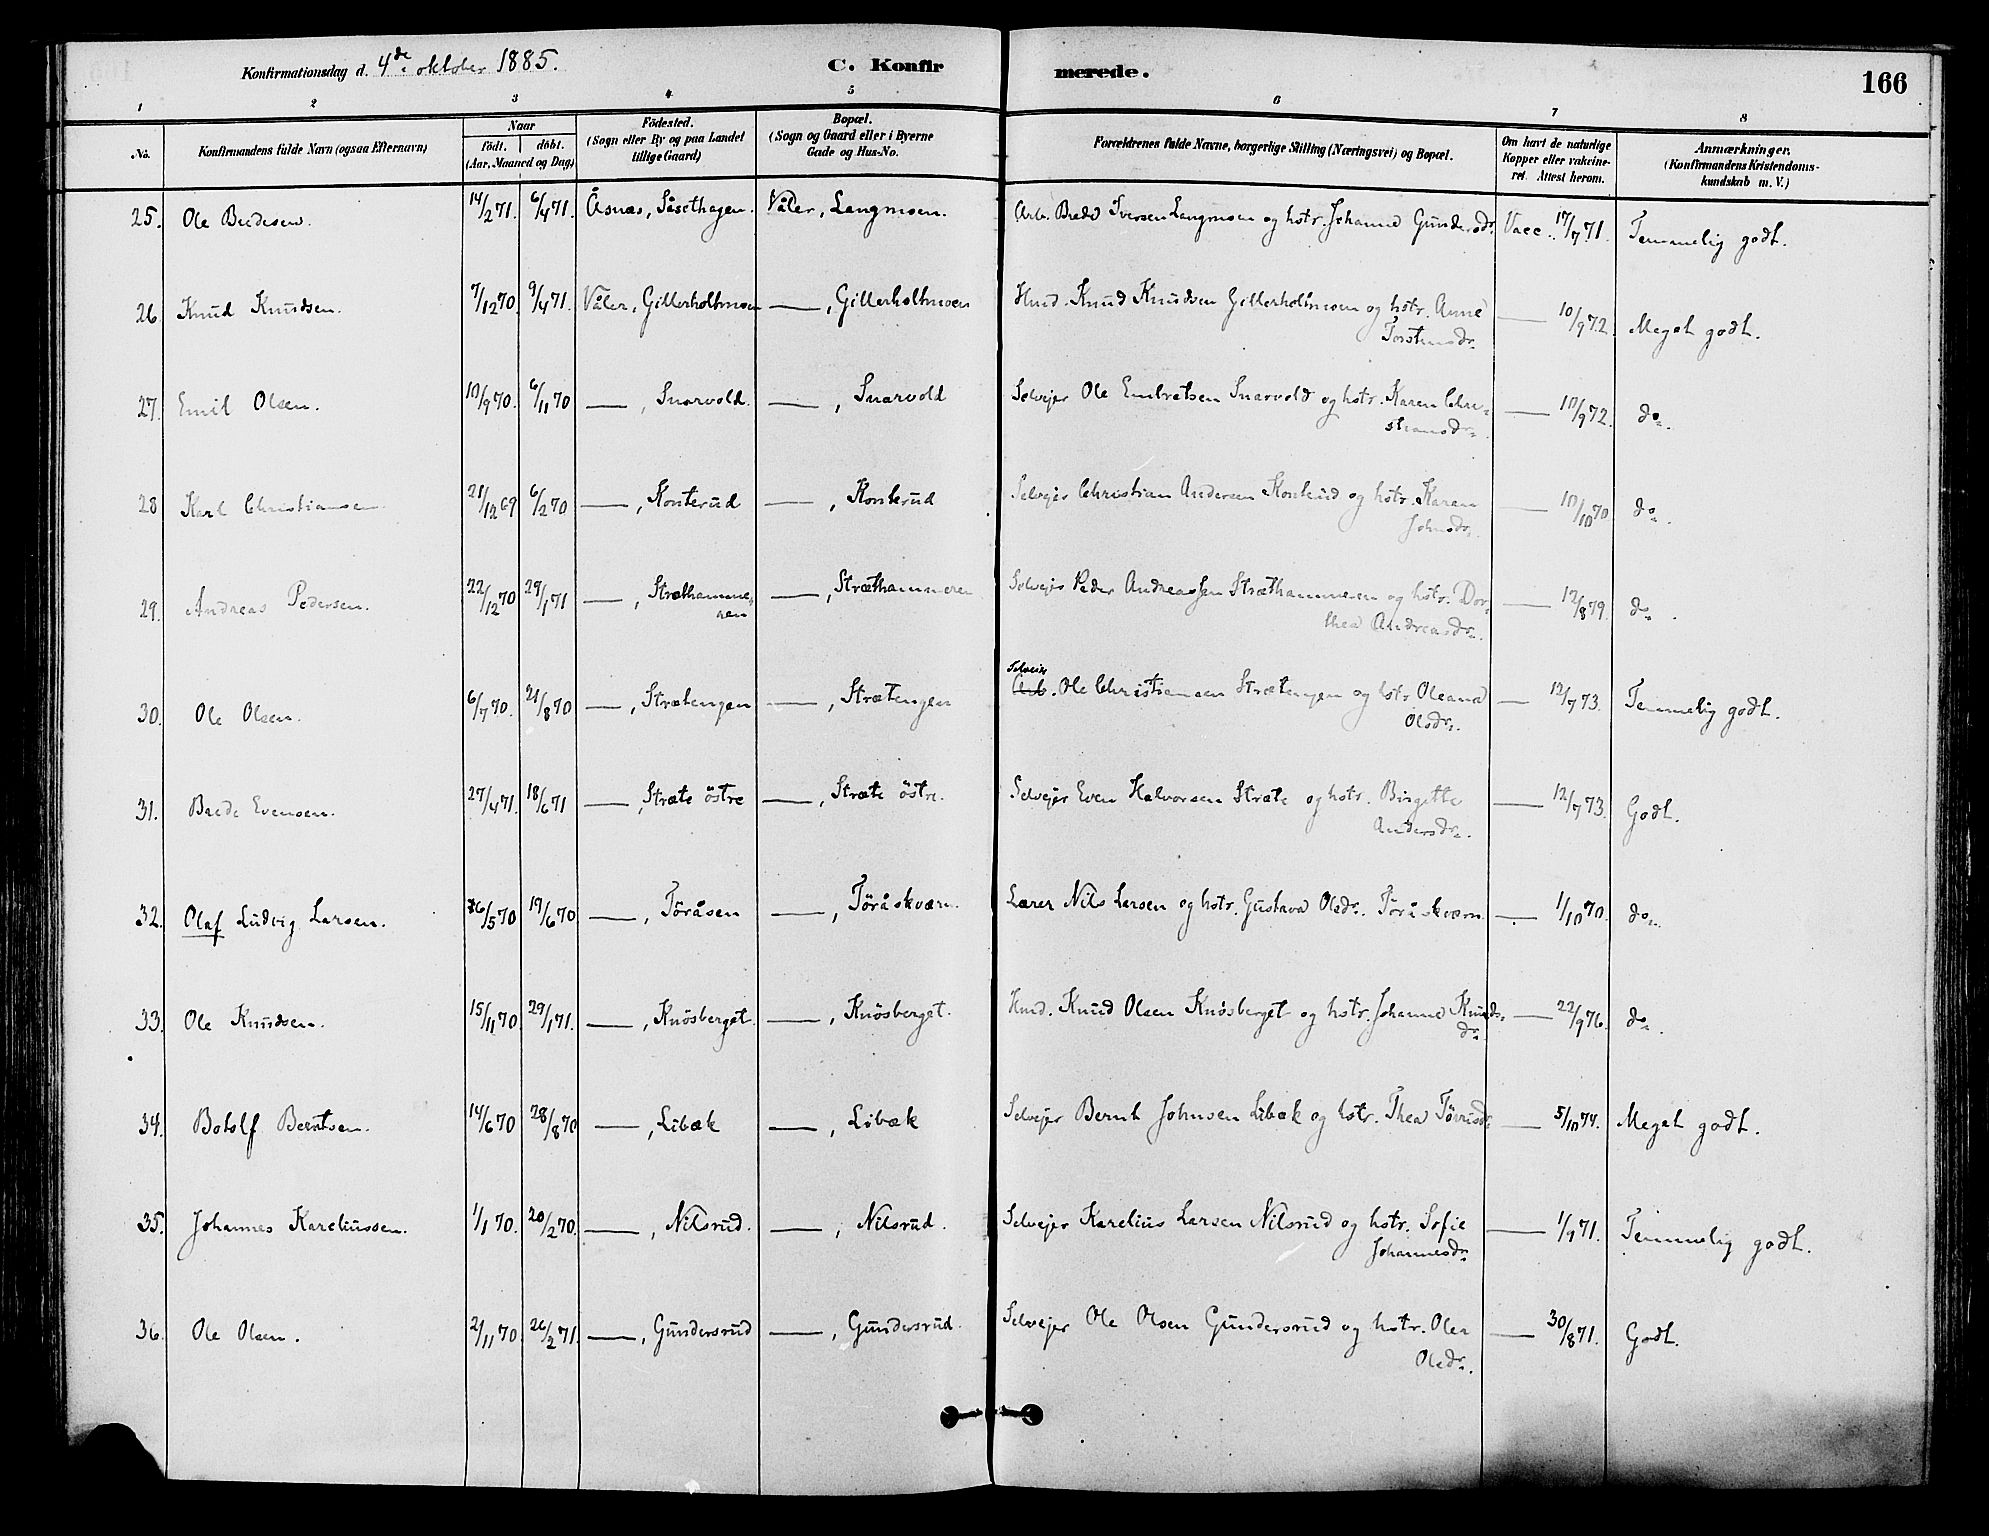 Konfirmationsdag d. 4de oktober 1885.
C. Konfir
merede.
166
1 2 3 4 5 6 7 8
No.
Konfirmandens fulde Navn (ogsaa Efternavn)
Naar
födt. döbt.
(Aar, Maaned og Dag)
Födested.
(Sogn eller By og paa Landet
tillige Gaard)
Bopæl.
(Sogn og Gaard eller i Byerne
Gade og Hus-No.
Forældrenes fulde Navne, borgerlige Stilling (Næringsvei) og Bopæl.
Om havt de naturlige
Kopper eller vakcine-
ret. Attest herom.
Anmærkninger.
(Konfirmandens Kristendoms-
kundskab m. V.)
25. Ole Bredesen. 14/2 71. 6/4 71. Åsnæs, Såsethagen. Våler, Langmoen. Arb. Brede Iversen Langmoen og hstr. Johanne Gundersdr. Vacc. 17/7 71. Temmelig godt.
26. Knud Knudsen. 7/12 70. 9/4 71. Våler, Gillerholtmoen —, Gillerholtmoen Hmd. Knud Knudsen Gillerholtmoen og hstr. Anne — 10/9 72. Meget godt.
Torstensdr.
27. Emil Olsen. 10/9 70. 6/11 70 —, Snarvold. —, Snarvold Selvejer Ole Embretsen Snarvold og hstr. Karen Chri- — 10/9 72. do.
stiansdr.
28 Karl Christiansen. 21/12 69 6/2 70 —, Konterud —, Konterud Selvejer Christian Andersen Konterud og hstr. Karen — 10/10 70. do.
Johnsdr.
29. Andreas Pedersen. 22/12 70 29/1 71 —, Stræthamme- —, Stræthammeren Selvejer Peder Andreassen Stræthammeren og hstr. Dor- — 12/8 79. do.
ren thea Andreasdr.
Selvejer
30. Ole Olsen. 6/7 70. 21/8 70 —, Strætengen —, Strætengen Arb. Ole Christiansen Strætengen og hstr. Oleana — 12/7 73. Temmelig godt.
Olsdr.
31. Brede Evensen. 27/4 71. 18/6 71 —, Stræte östre —, Stræte östre. Selvejer Even Halvorsen Stræte og hstr. Birgitte — 12/7 73. Godt.
Andersdr.
32. Olaf Ludvig Larsen. 26/5 70 19/6 70 —, Töråsen —, Töråskværn. Lærer Nils Larsen og hstr. Gustava Olsdr. Töråskværn — 1/10 70. do.
33. Ole Knudsen. 15/11 70 29/1 71. —, Knösberget. —, Knösberget. Hmd. Knud Olsen Knösberget og hstr. Johanne Knuds- — 22/9 76. do.
dr.
34. Botolf Berntsen. 14/6 70 28/8 70 —, Libæk —, Libæk Selvejer Bernt Johnsen Libæk og hstr. Thea — 5/10 74. Meget godt.
35. Johannes Kareliussen. 1/1 70. 20/2 70. —, Nilsrud. —, Nilsrud. Selvejer Karelius Larsen Nilsrud og hstr. Sofie — 1/9 71. Temmelig godt.
Johannesdr.
36. Ole Olsen. 2/11 70 26/2 71. —, Gundersrud —, Gundersrud. Selvejer Ole Olsen Gundersrud og hstr. Olea — 30/8 71. Godt.
Olsdr.